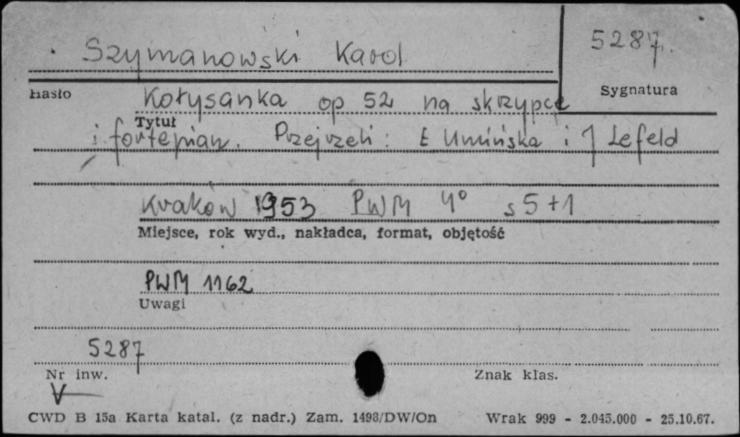 Szymanowski Karol
5287.
Hasło
Sygnatura
Kołysanka op 52 na skrzypce
Tytuł
i fortepian. Przejrzeli: E Umińska i J Lefeld
Kraków 1953 PWM 4° s 5+1
Miejsce, rok wyd., nakładca, format, objętość
PWM 1162
Uwagi
5287
Nr inw.
Znak klas.
V
CWD B 15a Karta katal. (z nadr.) Zam. 1493/DW/On Wrak 999 - 2.045.000 - 25.10.67.